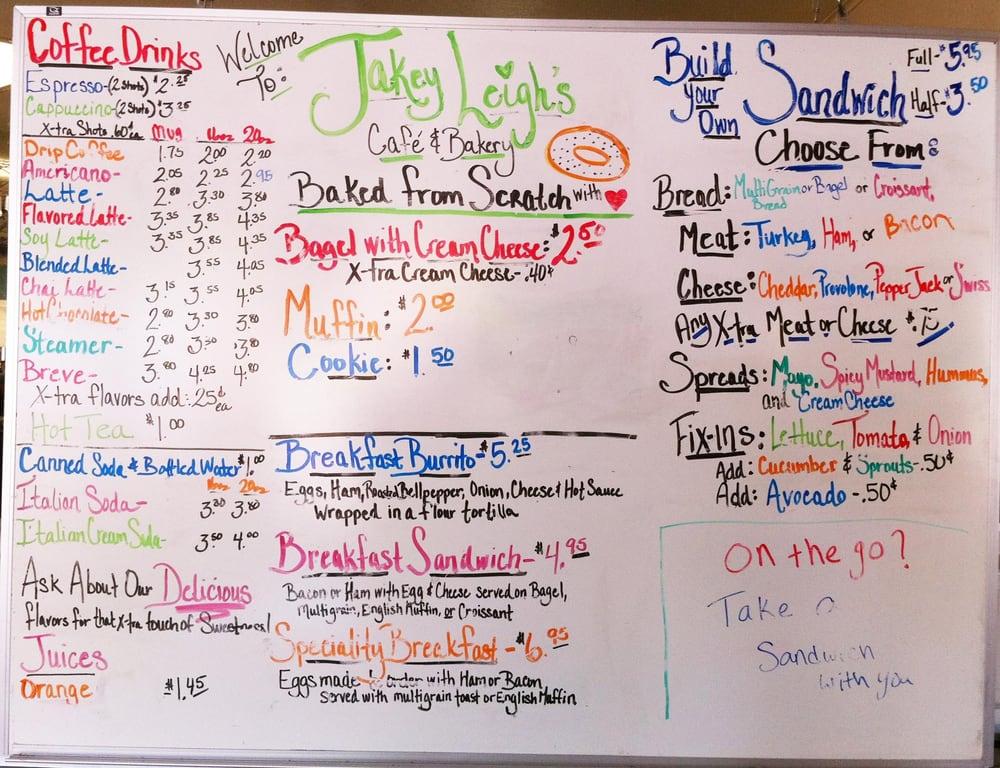 Coffee Drinks
Espresso-(2 Shots) $2.25
Cappuccino-(2 Shots) $3.25
X-tra Shots .60¢ea Mug 16oz 20oz
Drip Coffee 1.75 2.00 2.20
Americano- 2.05 2.25 2.95
Latte- 2.80 3.30 3.80
Flavored Latte- 3.35 3.85 4.35
Soy Latte- 3.35 3.85 4.35
Blended Latte- 3.55 4.05
Chai Latte- 3.15 3.55 4.05
Hot Chocolate- 2.80 3.30 3.80
Steamer- 2.80 3.30 3.80
Breve- 3.80 4.25 4.80
X-tra flavors add: .25¢ ea
Hot Tea $1.00
Canned Soda & Bottled Water $1.00
16oz 20oz
Italian Soda- 3.30 3.80
Italian Cream Soda- 3.50 4.00
Ask About Our Delicious
flavors for that X-tra touch of Sweetness!
Juices
Orange $1.45
Welcome
To:
Jakey Leigh's
Café & Bakery
Baked from Scratch with
Bagel with Cream Cheese: $2.50
X-tra Cream Cheese-.40¢
Muffin: $2.00
Cookie: $1.50
Breakfast Burrito-$5.25
Eggs, Ham, Roasted Bellpepper, Onion, Cheese & Hot Sauce
Wrapped in a flour tortilla
Breakfast Sandwich-$4.95
Bacon or Ham with Egg & Cheese served on Bagel,
Multigrain, English Muffin, or Croissant
Speciality Breakfast-$6.95
Eggs made to order with Ham or Bacon,
served with multigrain toast or English Muffin
Build
Your
Own
Sandwich
Full-$5.95
Half-$3.50
Choose From:
Bread: MultiGrain Bread or Bagel or Croissant,
Meat: Turkey, Ham, or Bacon
Cheese: Cheddar, Provolone, Pepper Jack or Swiss
Any X-tra Meat or Cheese
Spreads: Mayo, Spicy Mustard, Hummus,
and Cream Cheese
Fix-Ins: Lettuce, Tomato, & Onion
Add: Cucumber & Sprouts-.50¢
Add: Avocado-.50¢
On the go?
Take a
Sandwich
with you